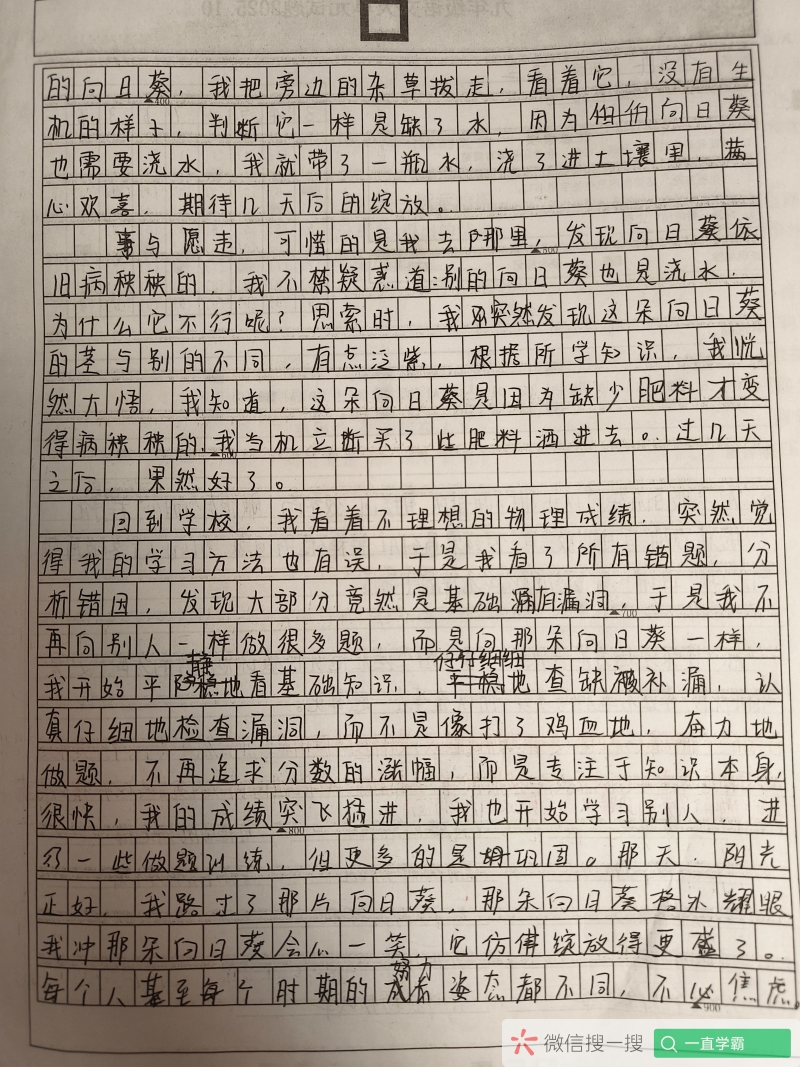 的向日葵，我把旁边的杂草拔走，看着它，没有生
▲400
机的样子，判断它一样是缺了水，因为向日葵
也需要浇水，我就带了一瓶水，浇了进土壤里，满
心欢喜，期待几天后的绽放。
事与愿走，可惜的是我去那里，发现向日葵依
▲500
旧病秧秧的，我不禁疑惑道:别的向日葵也是浇水，
为什么它不行呢？思索时，我突然发现这朵向日葵
的茎与别的不同，有点泛紫，根据所学知识，我恍
然大悟，我知道，这朵向日葵是因为缺少肥料才变
得病秧秧的，我当机立断买了些肥料洒进去。过几天
▲600
之后，果然好了。
回到学校，我看着不理想的物理成绩，突然觉
得我的学习方法也有误，于是我看了所有错题，分
析错因，发现大部分竟然是基础漏有漏洞，于是我不
▲700
再向别人一样做很多题，而是向那朵向日葵一样，
我开始平静地看基础知识，仔仔细细地查缺补漏，认
真仔细地检查漏洞，而不是像打了鸡血地，奋力地
做题，不再追求分数的涨幅，而是专注于知识本身，
很快，我的成绩突飞猛进，我也开始学习别人，进
▲800
行一些做题训练，但更多的是巩固。那天，阳光
正好，我路过了那片向日葵，那朵向日葵格外耀眼
我冲那朵向日葵会心一笑，它仿佛绽放得更盛了。
每个人甚至每个时期的努力姿态都不同，不必焦虑，
▲900
微信搜一搜
一直学霸